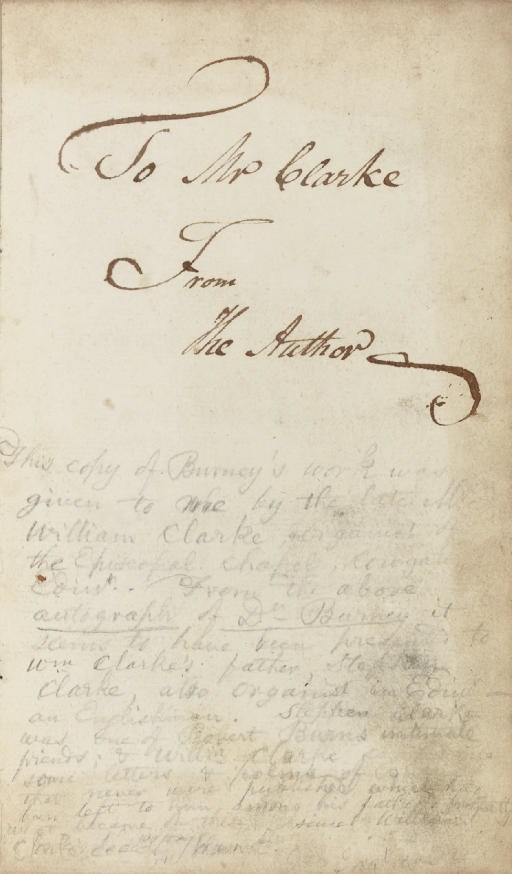 To Mr Clarke
From
The Author
This copy of Burney's work was
given to me by the late Mr
William Clarke organist
the Episcopal Chapel, Cowgate
Edinr. From the above
autograph of Dr Burney it
seems to have been presented to
Wm Clarke's father, Stephen
Clarke, also organist in Edinr
an Englishman. Stephen Clarke
was one of Robert Burns intimate
friends; & Willm Clarke
some letters & poems of
that never were published which had
been left to him among his father's
became of these since William
Clarke's death